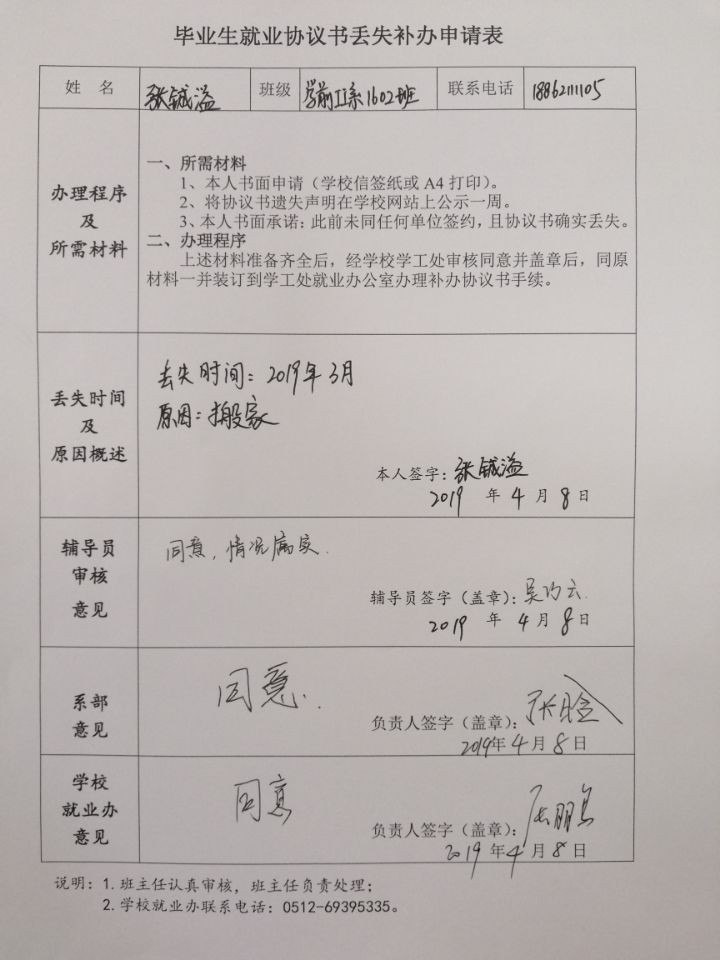 毕业生就业协议书丢失补办申请表
姓 名 张铖溢 班级 学前卫系1602班 联系电话 18862111105
办理程序
及
所需材料
一、所需材料
1、本人书面申请（学校信签纸或A4打印）。
2、将协议书遗失声明在学校网站上公示一周。
3、本人书面承诺：此前未同任何单位签约，且协议书确实丢失。
二、办理程序
上述材料准备齐全后，经学校学工处审核同意并盖章后，同原
材料一并装订到学工处就业办公室办理补办协议书手续。
丢失时间
及
原因概述
丢失时间：2019年3月
原因：搬家
本人签字：张铖溢
2019 年 4 月 8 日
辅导员
审核
意见
同意，情况属实.
辅导员签字（盖章）：吴巧云
2019 年 4 月 8 日
系部
意见
同意.
负责人签字（盖章）：
2019年 4 月 8 日
学校
就业办
意见
同意
负责人签字（盖章）：
2019 年 4 月 8 日
说明：1.班主任认真审核，班主任负责处理；
2.学校就业办联系电话：0512-69395335。